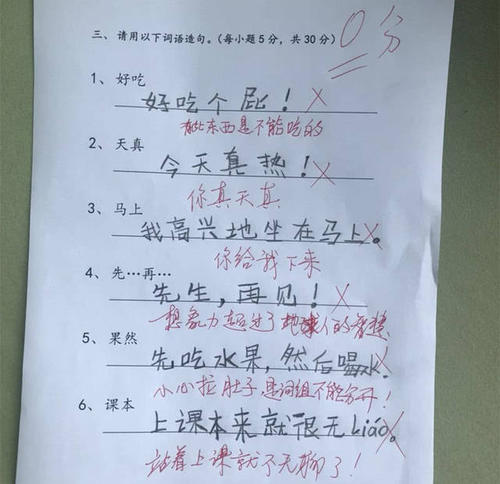 三、请用以下词语造句。(每小题5分，共30分)
0分
1、好吃
好吃个屁！
有些东西是不能吃的
2、天真
今天真热！
你真天真
3、马上
我高兴地坐在马上。
你给我下来
4、先……再……
先生，再见！
想象力超过了地球人的智慧
5、果然
先吃水果，然后喝水.
小心拉肚子 是词组不能分开！
6、课本
上课本来就很无Liáo。
站着上课就不无聊了！